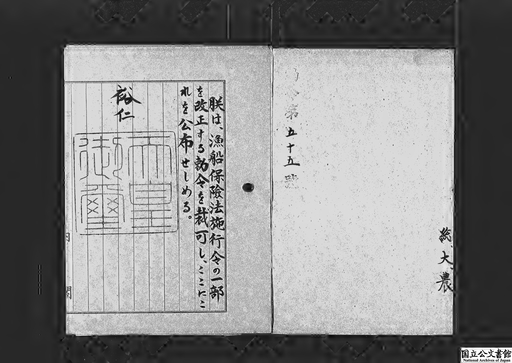 第五十五號
総大農
朕は、漁船保険法施行令の一部
を改正する勅令を裁可し、ここにこ
れを公布せしめる。
裕仁
天皇
御璽
国立公文書館
National Archives of Japan